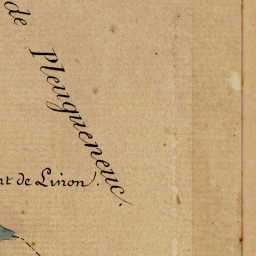 de Pleugueneuc.
nt de Linon.